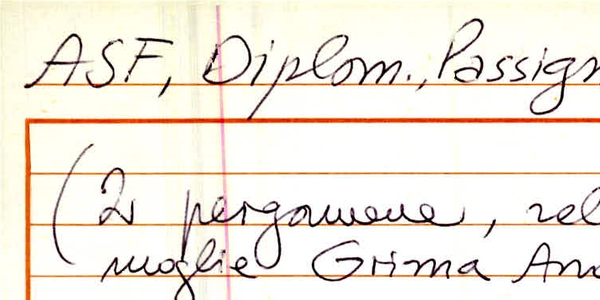 ASF, Diplom., Passign
(2 pergamene, rel
moglie Grima An